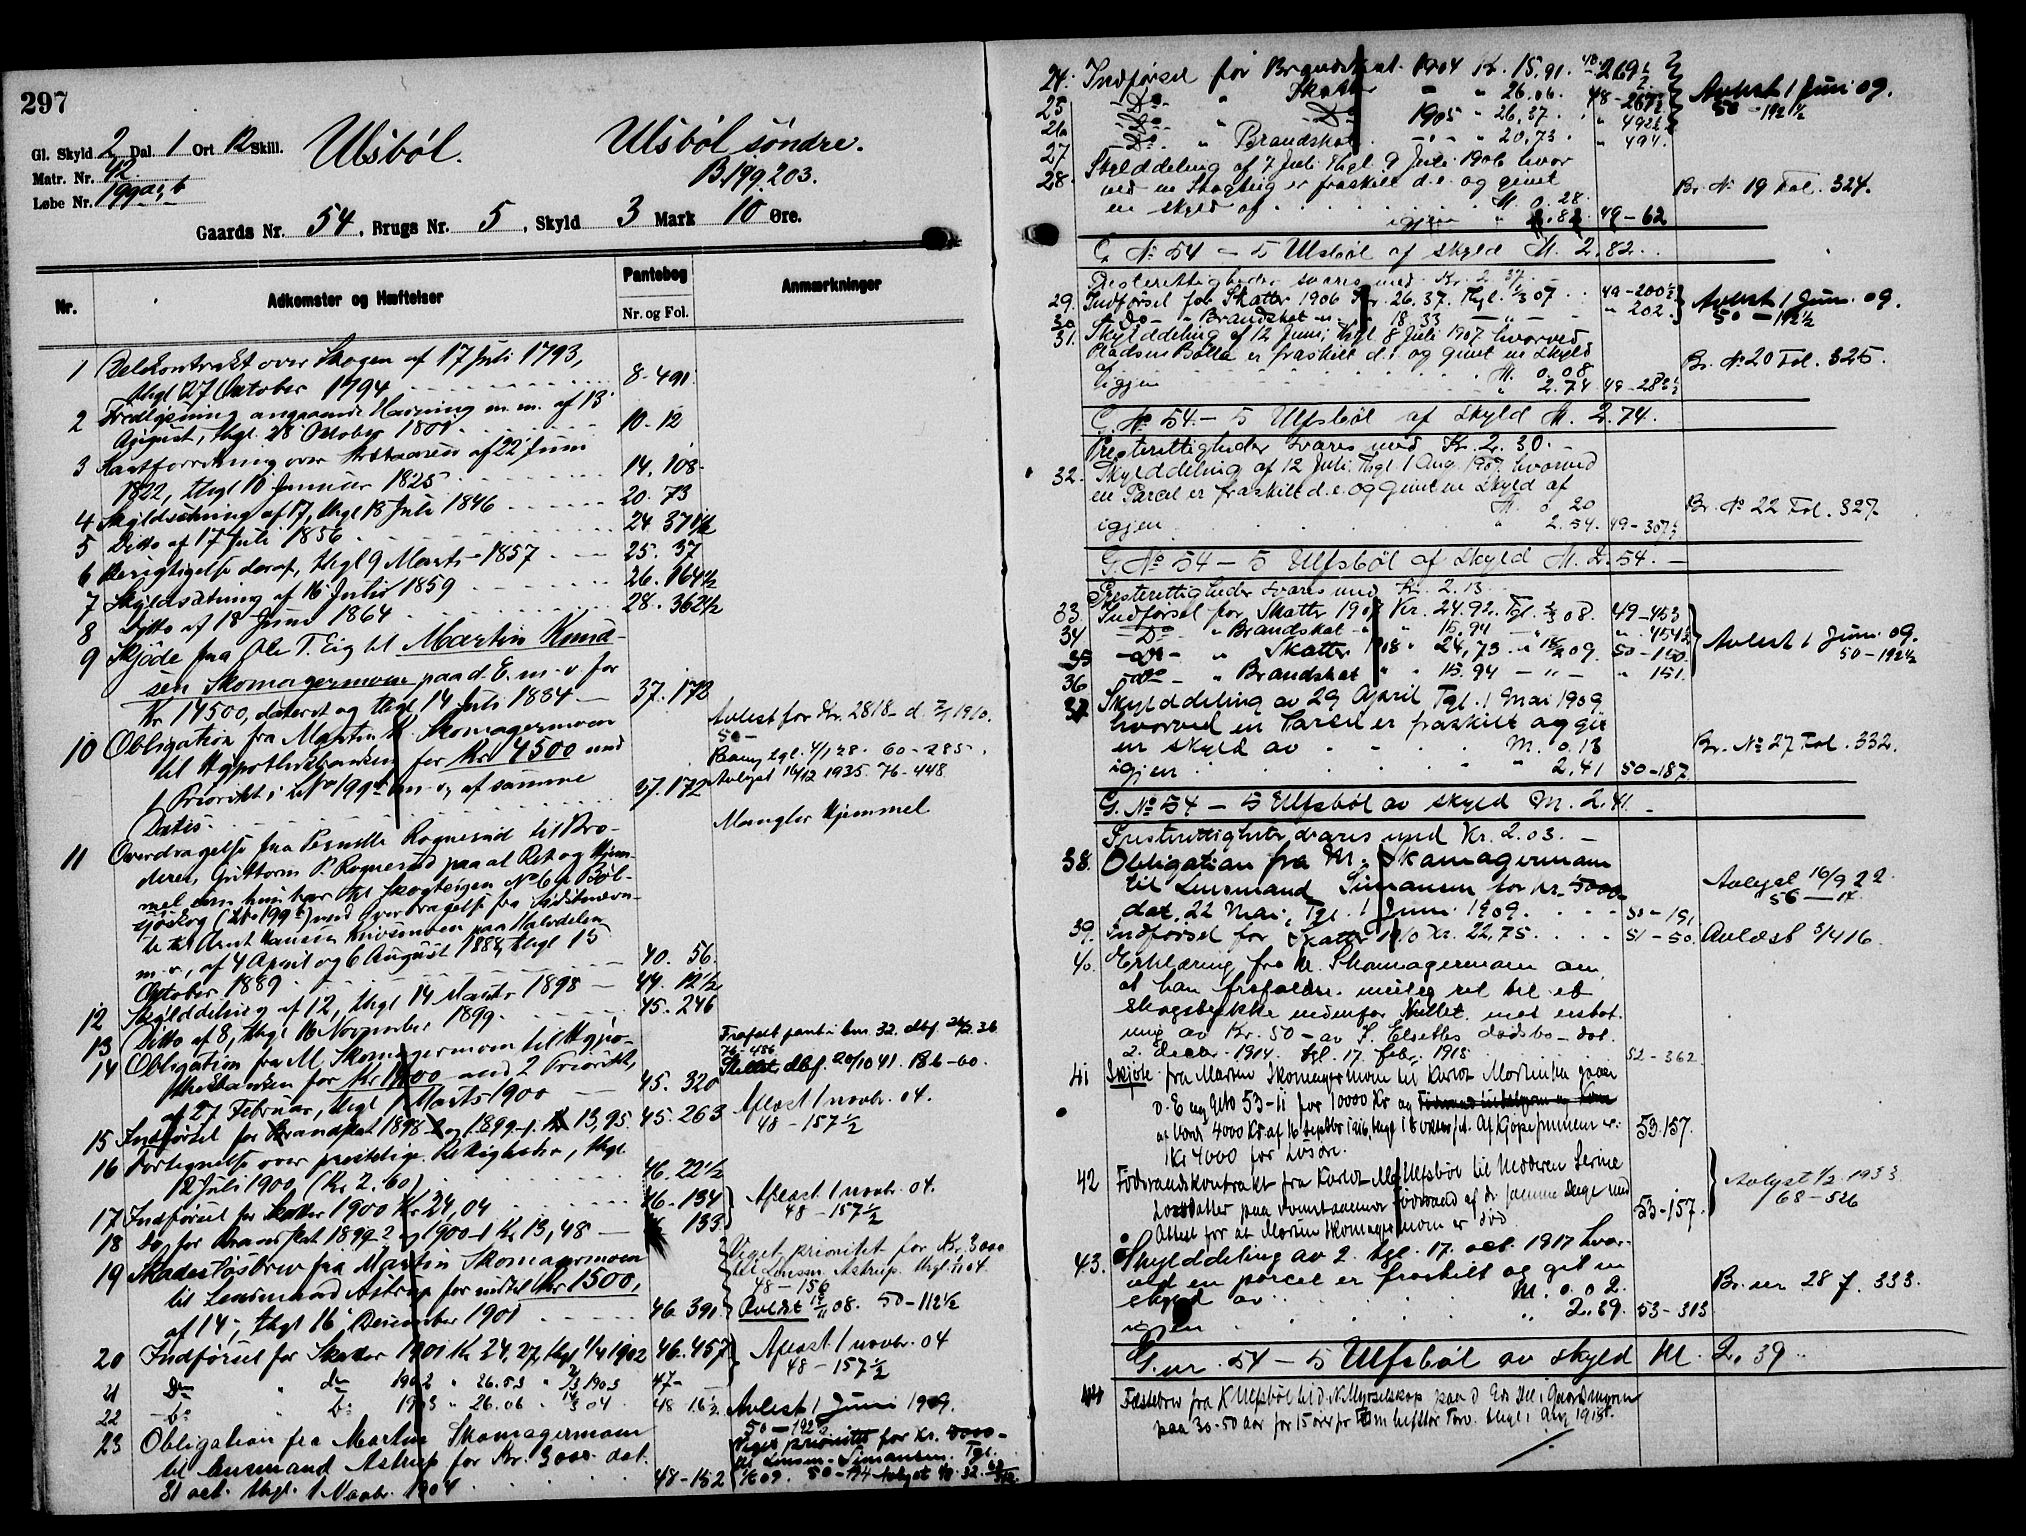 297
Gl. Skyld 2 Dal. 1 Ort 12 Skill.
Ulsböl.
Ulsböl söndre.
Matr. Nr. 42.
Løbe Nr. 199
B.199.203.
Gaards Nr. 54, Brugs Nr. 5, Skyld 3 Mark 10 Øre.
Nr.
Adkomster og Hæftelser
Pantebog
Nr. og Fol.
Anmærkninger
1 Delekontrakt over Skogen af 17 Juli 1793,
thgl 27 October 1794 8-491
2 Fredlysning angaaende Havning m. m. af 13
August, thgl. 28 October 1801 10-12
3 af 22 Juni
1822, thgl 10 Januar 1825 14. 108
4 Skyldsætning af 17, thgl 18 Juli 1846 20. 73
5 Ditto af 17 Juli 1856 24 371½
6 Berigtigelse deraf, thgl 9 Marts 1857 25. 37
7 Skyldsætning af 16 Juli 1859 26. 164½
8 Ditto af 18 Juni 1864 28. 362½
9 Skjöde fra Ole T. Eig til Martin Knud-
sen Skomagermoen paa d. E. m. v for
Kr 14500, dateret og thgl 14 Juli 1884 37. 172
10 Obligation fra Martin K Skomagermoen
til Hypothekbanken for Kr 4500 med
1 Prioritet i L No 199 m. v, af samme
Datis. 37. 172
Avlest for Kr. 2818 d. 1910.
50-
tgl. 4/1 28. 60-285.
Avlyst 16/12 1935. 76-448
11 Overdragelse fra Pernille Rognerud til Bro-
deren, Guttorm P. Rognerud paa al Ret og Hjem-
mel som hun har til Skogteigen No 6 i Böl-
sjöskog (L No 199) med Overdragelse fra Sidstnævn-
te til Arnt Hansen paa Halvdelen
m. v., af 4 April og 6 August 1888, thgl 15
October 1889 40. 56.
Mangler Hjemmel
12 Skylddeling af 12, thgl 14 Marts 1898 44. 12½
13 Ditto af 8, thgl 16 November 1899 45. 246
14 Obligation fra M. Skomagermoen til Hypo-
thekbanken for Kr 1400 med 2 Prioritet,
af 27 Februar, thgl 1 Marts 1900 45. 320
Frafalt pant i bnr. 32. dbf. 36
76-486
Slettet dbf. 20/10 41. 186-60.
15 Indförsel for Brandskat 1898-2 og 1899-1 Kr 13,95 45. 263
Aflæst 1 novbr. 04.
48-157½
16 Fortegnelse over prestelige Rettigheder, thgl
12 Juli 1900 (Kr 2.60) 46. 22½
17 Indförsel for Skatter 1900 Kr 24,04 46-134
18 Do for Brandskat 1899-2 og 1900-1 Kr 13,48 " 133
Aflæst 1 novbr. 04.
48-157½
19 Skadeslösbrev fra Martin Skomagermoen
til Lensmand Astrup for indtil Kr 1500,
af 14, thgl 16 December 1901 46 391
Viget prioritet for Kr. 3000
til Lensm. Astrup. thgl. 1/11 04.
48-156
Avlæst 08. 50-112½
20 Indförsel for Skatter 1901 Kr 24,27, thgl 1902 46.457
21 Do " do 1902 " 26.53 " 1903 47-
Aflæst 1 novbr. 04
48-157½
22 Do " do 1903 " 26.06 " 04 48 16½
Avlest 1 Juni 1909.
50-192½
23 Obligation fra Martin Skomagermoen
til Lensmand Astrup for Kr. 3000 dat.
31 oct. thgl. 1 Novbr. 1904 48-152
Viget prioritet for Kr. 5000-
til Lensm. Simansen. Tgl.
1/6 09. 50-194
24. Indförsel for Brandskat 1904 Kr. 15,91. 48-269½
25 Do " Skatter " " 26.06. 48-267½
26 Do " Do 1905 " 26.37 " 492½
27 Do " Brandskat " 20,73 " 494.
Avlest 1 Juni 09.
50-192½
28. Skylddeling af 7 Juli thgl. 9 Juli 1906 hvor
ved en Skogteig er fraskilt d. e. og givet
en skyld af M. 0.28
igjen " 2.82 49-62
Br. No 19 Fol. 324.
G. No 54 - 5 Ulsböl af skyld M. 2.82.
Presterettigheder svares med Kr. 2.37
29. Indförsel for Skatter 1906 Kr. 26.37. Thgl. 07 49-200½
30 Do " Brandskat " " 18.33 " 202.
Avlest 1 Juni 09.
50-192½
31. Skylddeling af 12 Juni, thgl. 8 Juli 1907 hvorved
Pladsen Bölla er fraskilt d. e. og givet en skyld
af M. 0.08
igjen " 2.74 49-283½
Br. No 20 Fol. 325.
G. No 54 - 5 Ulfsböl af skyld M. 2.74.
Presterettigheder svares med Kr. 2.30.
32. Skylddeling af 12 Juli. Thgl. 1 Aug. 1907 hvorved
en Parcel er fraskilt d. e. og givet en skyld af
M. 0.20
igjen " 2.54. 49-307½
Br. No 22 Fol. 327.
G. No 54 - 5 Ulfsböl af skyld M. 2.54.
Presterettigheder svares med Kr. 2.13
33. Indförsel for Skatter 1907 Kr. 24.92. Tgl. 08. 49-453
34 Do " Brandskat " " 15.94 " 454½
35 Do " Skatter 1908 " 24,73 " 09. 50-150
36 Do " Brandskat " " 15.94 - " - " 151.
Avlest 1 Juni 09.
50-192½
37 Skylddeling av 29 April Tgl. 1 Mai 1909
hvorved en Parsel er fraskilt og git
en skyld av M. 0.13
igjen " 2,41 50-187
Br. No 27 Fol. 332.
G. No 54 - 5 Ulfsböl av skyld M. 2.41.
Presterettigheter svares med Kr. 2.03.
38. Obligation fra M. Skomagermoen
til Lensmand Simansen for kr. 5000
dat. 22 Mai, Tgl. 1 Juni 1909. 50-191
Avlyst 16/9 22.
56-
39. Indförsel for Skatter 1910 Kr. 22,75. 51-50.
Avlæst 5/4 16.
40. Erklæring fra M. Skomagermoen om
at han frafalder mulig ret til et
skogstykke nedenfor mot erstat
ning av Kr. 50 - av dødsbo - dat.
2. decbr. 1914. tgl. 17. febr. 1915 52-362
41 Skjöte fra Martin Skomagermoen til Karlot Martinsen paa
d. E og Gno 53-11 for 10000 Kr og
av Værdi 4000 Kr af 16 septbr 1916, thgl 18 okt. Af Kjöpesummen er
Kr 4000 for Lösöre. 53.157.
42 Föderaadskontrakt fra Karlot M. Ulfsböl til Moderen Serine
datter paa Föderaad af d. samme Dage med
Attest for at Martin Skomagermoen er död 53-157.
Avlyst 1/2 1933
68-526
43. Skylddeling av 2. tgl. 17. oct. 1917 hvor-
ved en parcel er fraskilt og git en
skyld av M. 0.02.
igjen " 2.39. 53-313
Br. nr. 28 f. 333.
G. nr. 54 - 5 Ulfsböl av skyld M. 2.39.
44 Festebrev fra K Ulfsböl til D. N. Myrselskap paa d
paa 30-50 aar for 15 öre pr